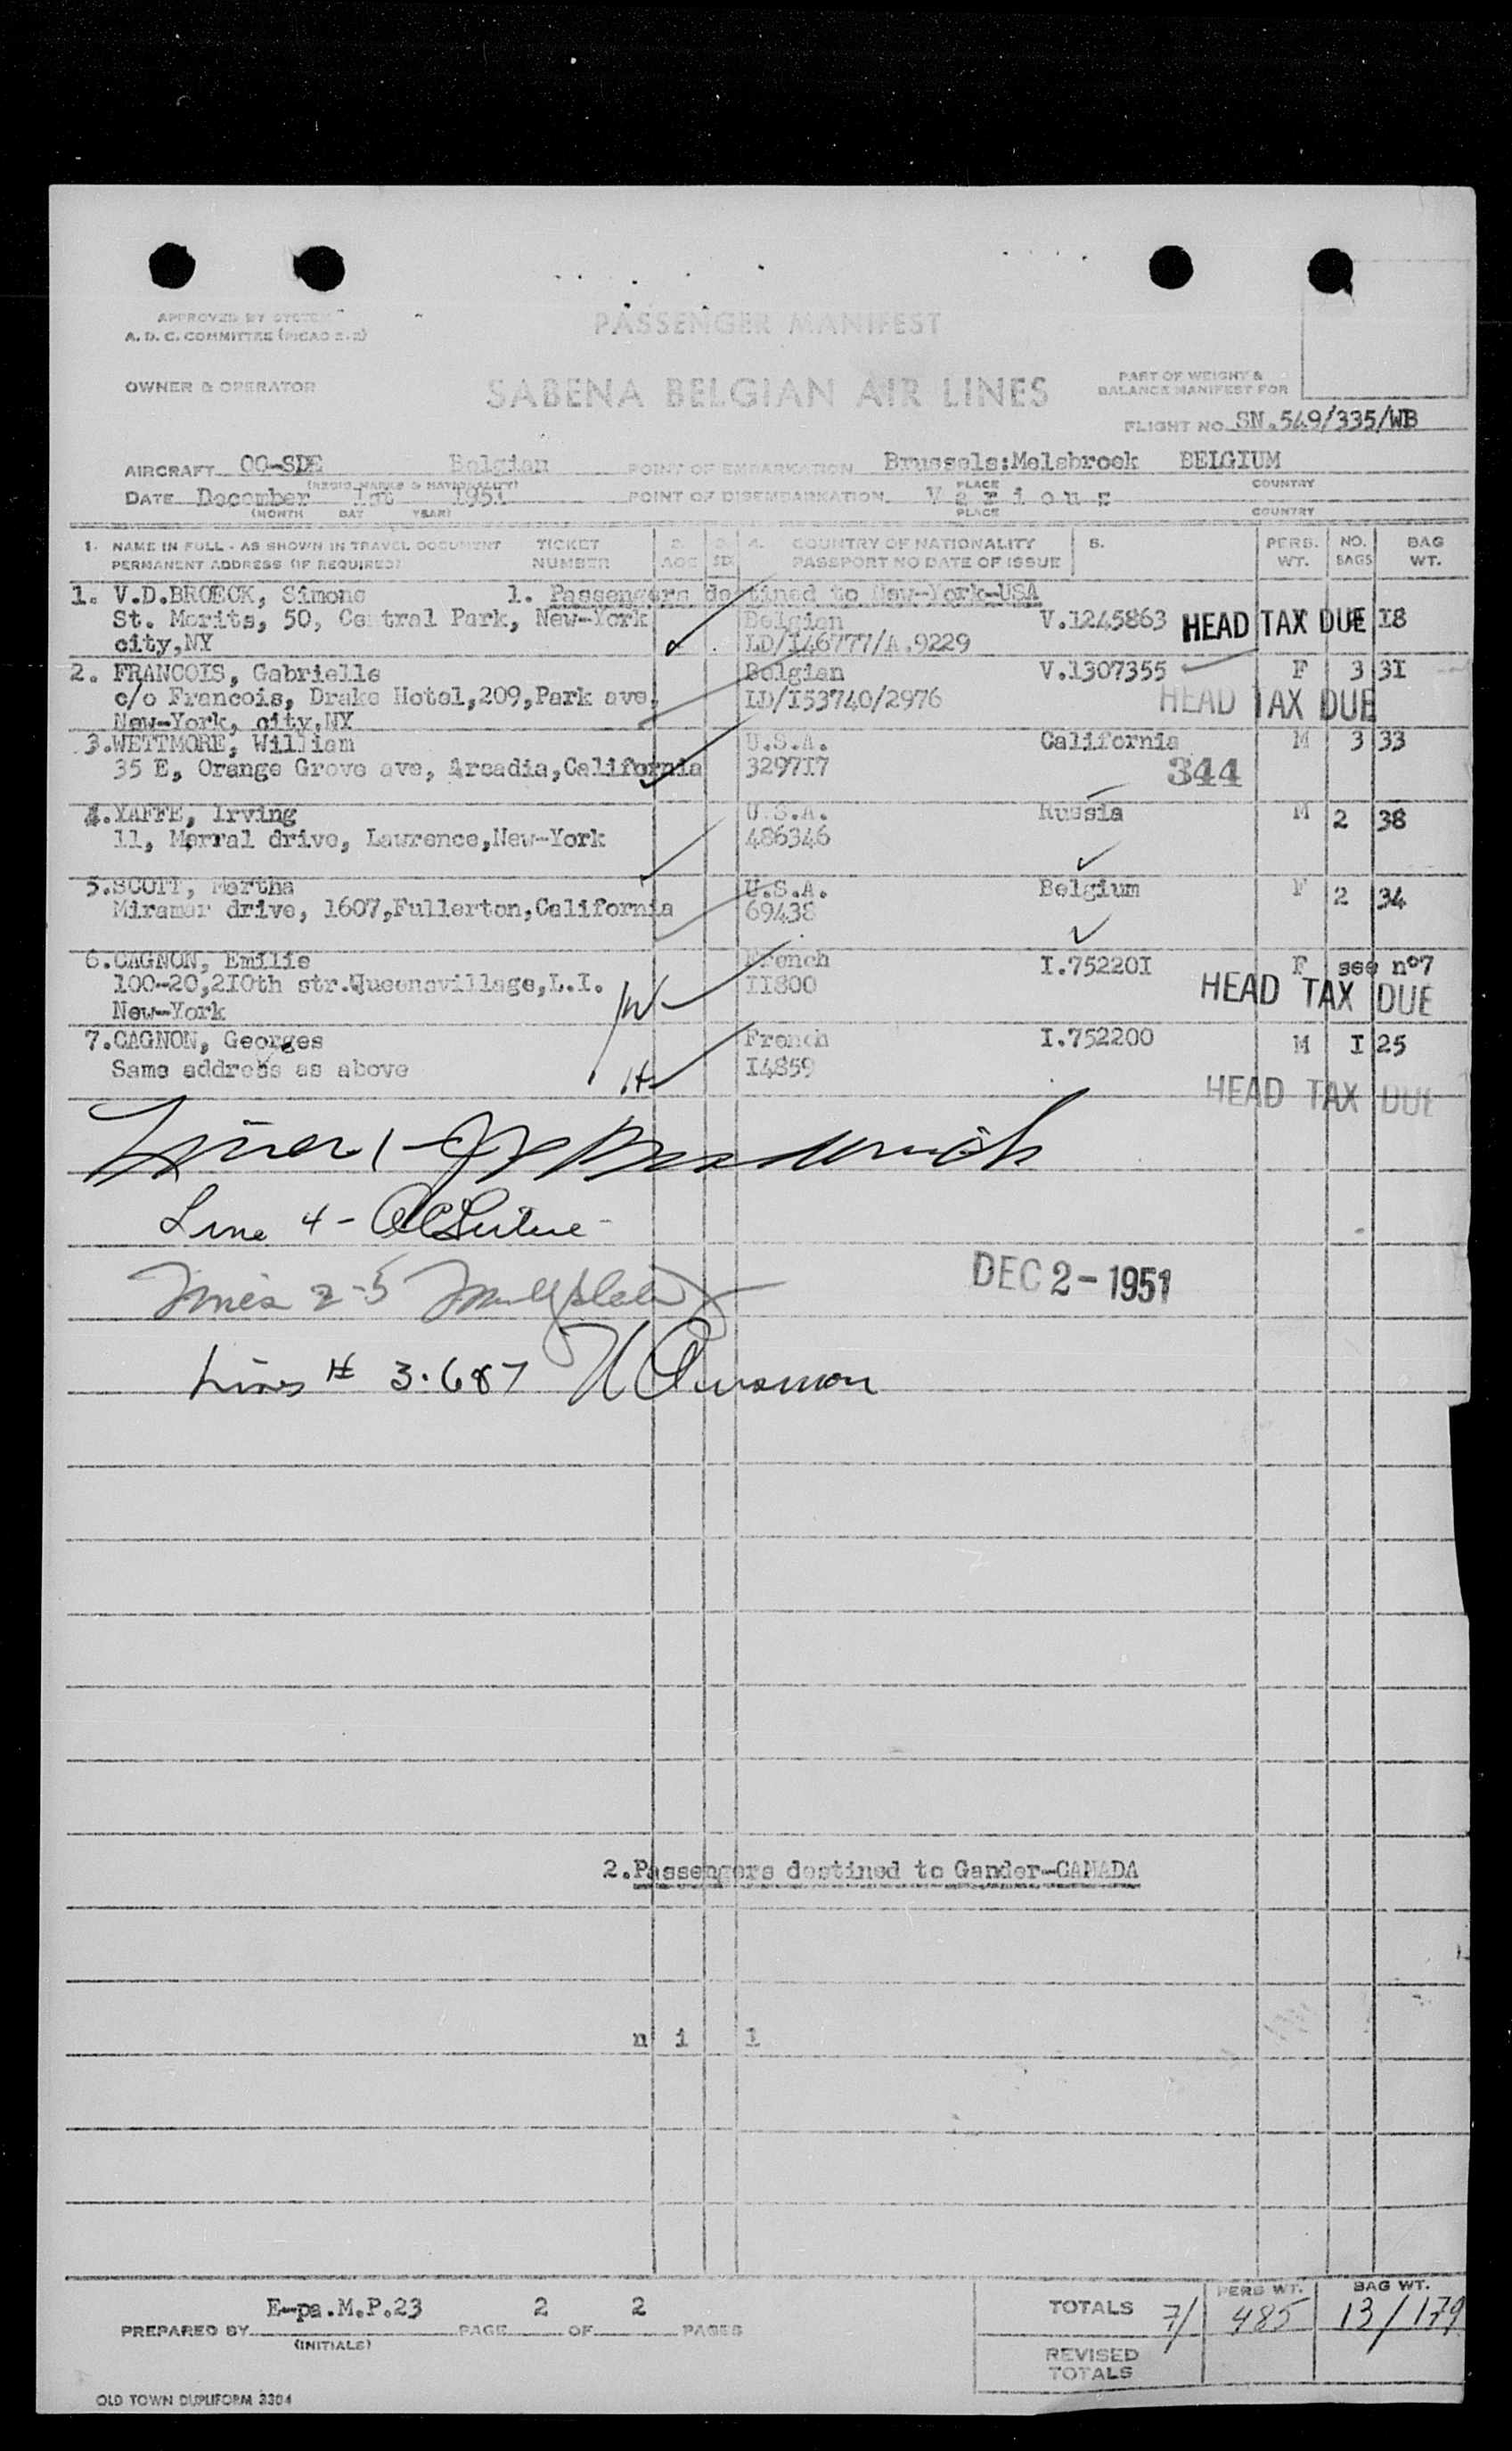 APPROVED BY
A. D. C. COMMITTEE (PICAO 2-2)
PASSENGER MANIFEST
OWNER & OPERATOR
SABENA BELGIAN AIR LINES
PART OF WEIGHT &
BALANCE MANIFEST FOR
FLIGHT NO. SN.549/335/WB
AIRCRAFT OO-SDE Belgian POINT OF EMBARKATION Brussels:Melsbroek BELGIUM
(REGIS. MARKS & NATIONALITY) PLACE COUNTRY
DATE December 1st 1951 POINT OF DISEMBARKATION V a r i o u s
(MONTH DAY YEAR) PLACE COUNTRY
1. NAME IN FULL - AS SHOWN IN TRAVEL DOCUMENT TICKET 2. 3. 4. COUNTRY OF NATIONALITY 5. PERS. NO. BAG
PERMANENT ADDRESS (IF REQUIRED) NUMBER AGE SEX PASSPORT NO DATE OF ISSUE WT. BAGS WT.
1. V.D.BROECK, Simone 1. Passengers destined to New-York-USA
St. Morits, 50, Central Park, New-York Belgian V.1245863 HEAD TAX DUE I8
city,NY LD/I46777/A.9229
2. FRANCOIS, Gabrielle Belgian V.1307355 F 3 3I
c/o Francois, Drake Hotel,209,Park ave, LD/I53740/2976 HEAD TAX DUE
New-York, city,NY
3.WETTMORE, William U.S.A. California M 3 33
35 E, Orange Grove ave, Arcadia,California 3297I7 344
4.YAFFE, Irving U.S.A. Russia M 2 38
11, Merral drive, Lawrence,New-York 486346
5.SCOTT, Martha U.S.A. Belgium F 2 34
Miramar drive, 1607,Fullerton,California 69438
6.CAGNON, Emilie French I.75220I F see n°7
100-20,2I0th str.Queensvillage,L.I. II800 HEAD TAX DUE
New-York
7.CAGNON, Georges French I.752200 M I 25
Same address as above I4859
HEAD TAX DUE
Line 4 -
DEC 2 - 1951
Lines 2-5
Lines # 3.6&7
2.Passengers destined to Gander-CANADA
n i l
E-pa.M.P.23 2 2
PREPARED BY PAGE OF PAGES
(INITIALS)
PERS WT. BAG WT.
TOTALS 7/ 485 13/179
REVISED
TOTALS
OLD TOWN DUPLIFORM 3304